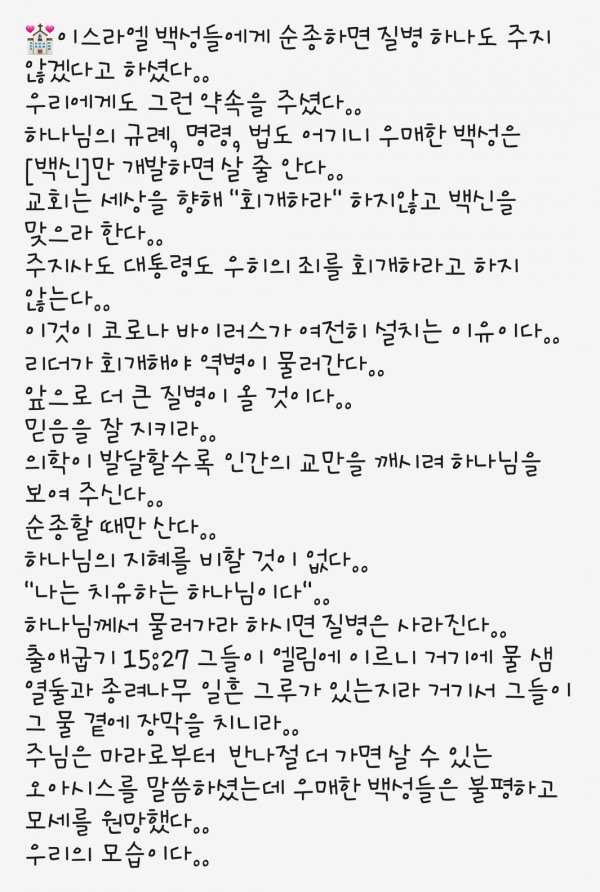 💒이스라엘 백성들에게 순종하면 질병 하나도 주지
않겠다고 하셨다。。
우리에게도 그런 약속을 주셨다。。
하나님의 규례, 명령, 법도 어기니 우매한 백성은
[백신]만 개발하면 살 줄 안다。。
교회는 세상을 향해 "회개하라" 하지않고 백신을
맞으라 한다。。
주지사도 대통령도 우히의 죄를 회개하라고 하지
않는다。。
이것이 코로나 바이러스가 여전히 설치는 이유이다。。
리더가 회개해야 역병이 물러간다。。
앞으로 더 큰 질병이 올 것이다。。
믿음을 잘 지키라。。
의학이 발달할수록 인간의 교만을 깨시려 하나님을
보여 주신다。。
순종할 때만 산다。。
하나님의 지혜를 비할 것이 없다。。
"나는 치유하는 하나님이다"。。
하나님께서 물러가라 하시면 질병은 사라진다。。
출애굽기 15:27 그들이 엘림에 이르니 거기에 물 샘
열둘과 종려나무 일흔 그루가 있는지라 거기서 그들이
그 물 곁에 장막을 치니라。。
주님은 마라로부터 반나절 더 가면 살 수 있는
오아시스를 말씀하셨는데 우매한 백성들은 불평하고
모세를 원망했다。。
우리의 모습이다。。